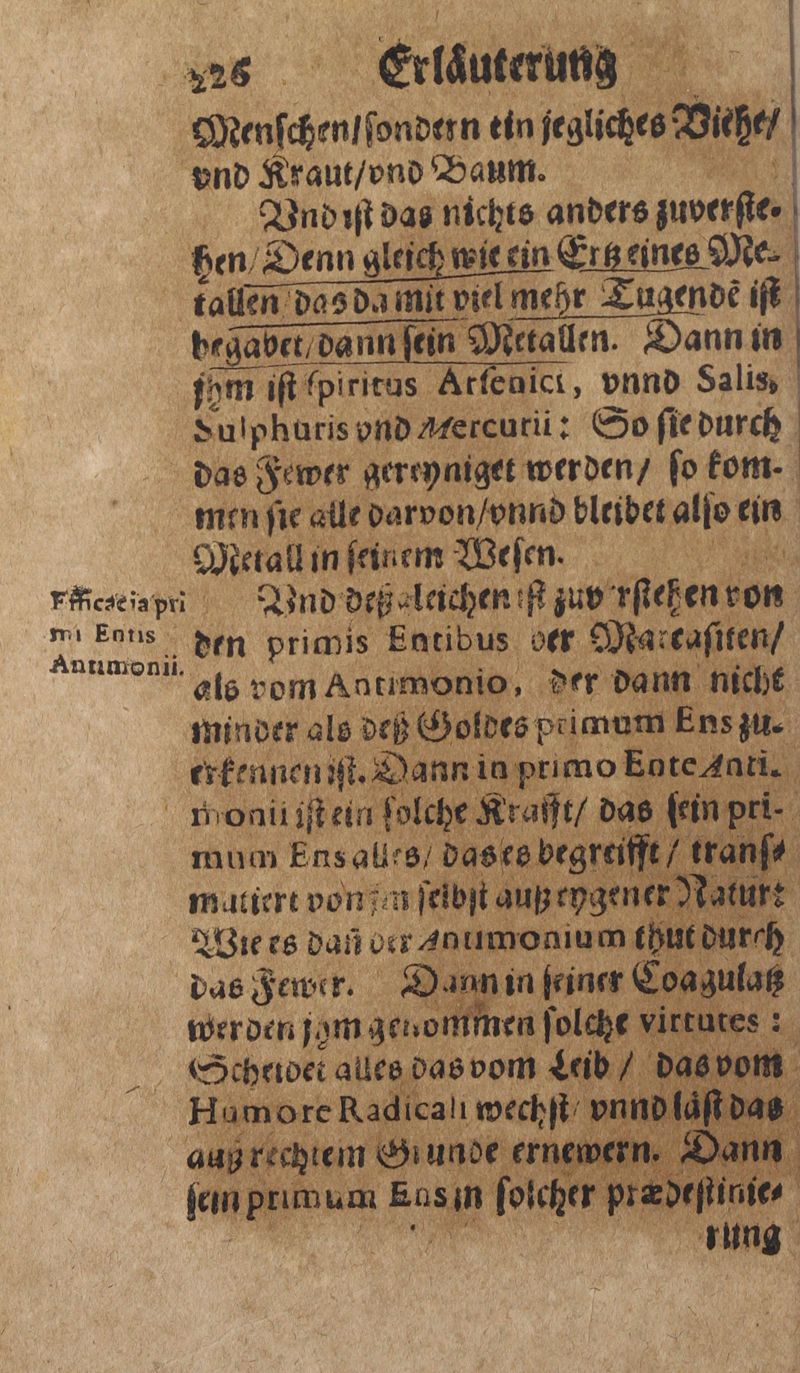 226 Erläuterung
Menſchen/ſondern ein jegliches Viehe/
vnd Kraut/vnd Baum.
Vnd iſt das nichts anders zuverſte-
hen/Denn gleich wie ein Ertz eines Me-
tallen das da mit viel mehr Tugendẽ iſt
begabet/dann ſein Metallen. Dann in
jhm iſt ſpiritus Arſenici, vnnd Salis,
Sulphuris vnd Mercurii: So ſie durch
das Fewer gereyniget werden/ ſo kom-
men ſie alle darvon/vnnd bleibet alſo ein
Metall in ſeinem Weſen.
Efficacia pri
mi Entis
Antimonii.
Vnd deßgleichen iſt zuverſtehen von
den primis Entibus der Marcaſiten/
als vom Antimonio, der dann nicht
minder als deß Goldes primum Ens zu-
erkennen iſt. Dann in primo Ente Anti-
monii iſt ein ſolche Krafft/ das ſein pri-
mum Ens alles/ das es begreifft/ tranſ-
mutiert von jm ſelbſt auß eygener Natur:
Wie es dañ der Antimonium thut durch
das Fewer. Dann in ſeiner Coagulatz
werden jhm genommen ſolche virtutes:
Scheidet alles das vom Leib/ das vom
Humore Radicali wechſt/ vnnd läſt das
auß rechtem Grunde ernewern. Dann
ſein primum Ens in ſolcher prædeſtinie-
rung